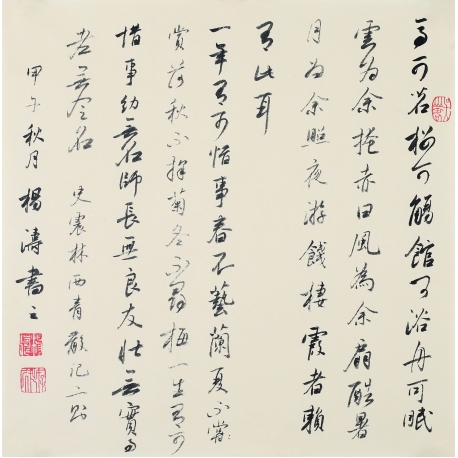 亭可茗榭可觴館可浴舟可眠
雲為余掩赤日風為余扇酷暑
月為余照夜游餞棲霞者賴
有此耳
一年有可惜事春不藝蘭夏不嘗
賞荷秋不採菊冬不尋梅一生有可
惜事幼無名師長無良友壯無實事
老無令名 史震林西青散記二則
甲午秋月楊濤書之